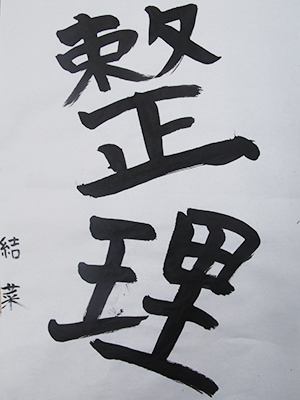 整理
結菜